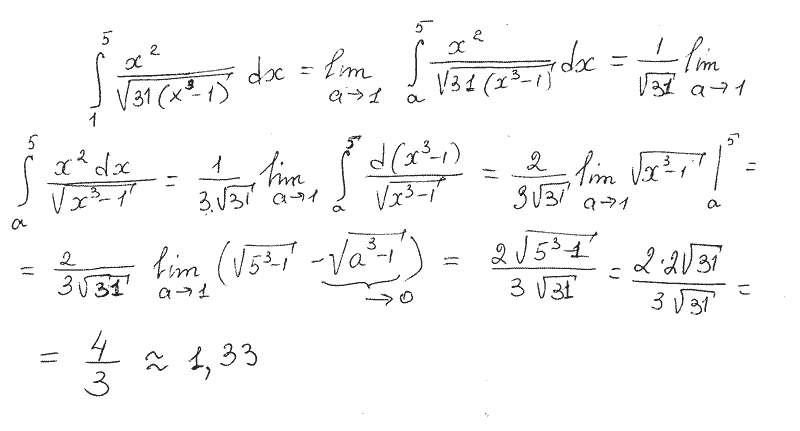 \int_1^5 \frac{x^2}{\sqrt{31(x^3-1)}} dx = \lim_{a \to 1} \int_a^5 \frac{x^2}{\sqrt{31(x^3-1)}} dx = \frac{1}{\sqrt{31}} \lim_{a \to 1}
\int_a^5 \frac{x^2 dx}{\sqrt{x^3-1}} = \frac{1}{3\sqrt{31}} \lim_{a \to 1} \int_a^5 \frac{d(x^3-1)}{\sqrt{x^3-1}} = \frac{2}{3\sqrt{31}} \lim_{a \to 1} \sqrt{x^3-1} \Big|_a^5 =
= \frac{2}{3\sqrt{31}} \lim_{a \to 1} (\sqrt{5^3-1} - \underbrace{\sqrt{a^3-1}}_{\to 0}) = \frac{2\sqrt{5^3-1}}{3\sqrt{31}} = \frac{2 \cdot 2\sqrt{31}}{3\sqrt{31}} =
= \frac{4}{3} \approx 1,33